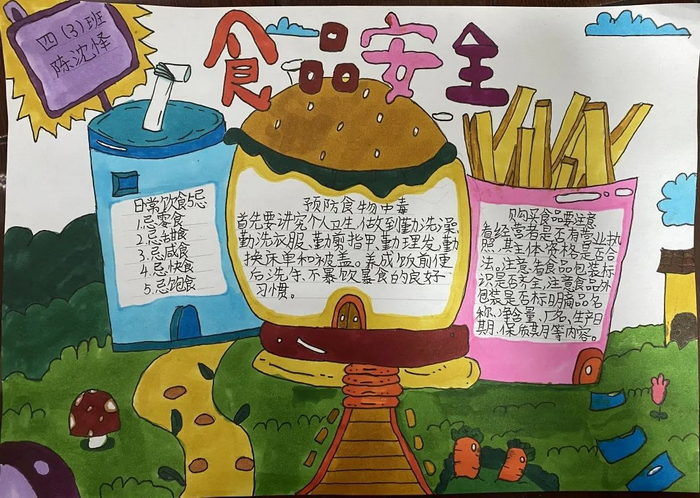 四(3)班
陈沈怿
食品安全
日常饮食5忌
1.忌零食
2.忌甜食
3.忌咸食
4.忌快食
5.忌饱食
预防食物中毒
首先要讲究个人卫生,做到勤洗澡
勤洗衣服、勤剪指甲、勤理发,勤
换床单和被盖。养成饭前便
后洗手,不暴饮暴食的良好
习惯。
购买食品要注意
看经营者是否有营业执
照,其主体资格是否合
法。注意看食品包装标
识是否齐全,注意食品外
包装是否标明商品名
称、净含量、厂名、生产日
期、保质期等内容。